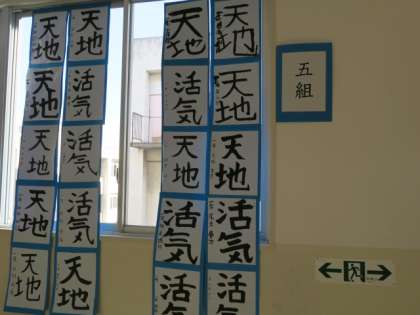 五組
天地
天地
天地
活気
活気
天地
活気
天地
活気
活気
天地
活気
活気
活気
天地
天地
天地
天地
天地
天地